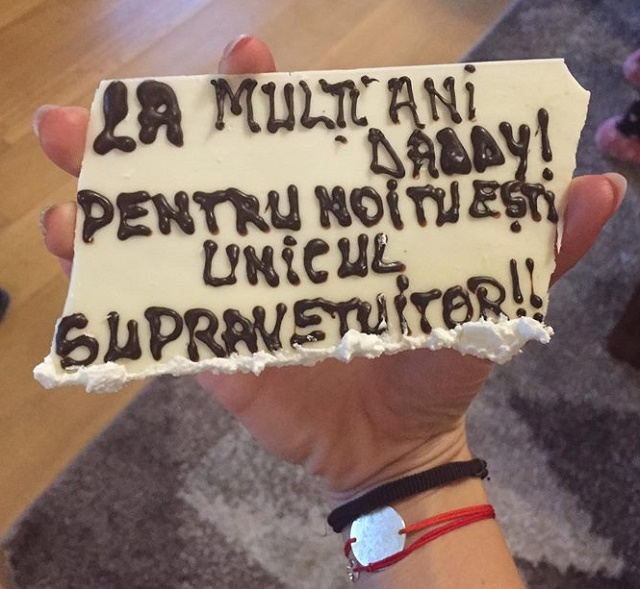 LA MULȚI ANi
DADDY!
PENTRU NOi TU EȘTi
UNiCUL
SUPRAVEȚUiTOR!!